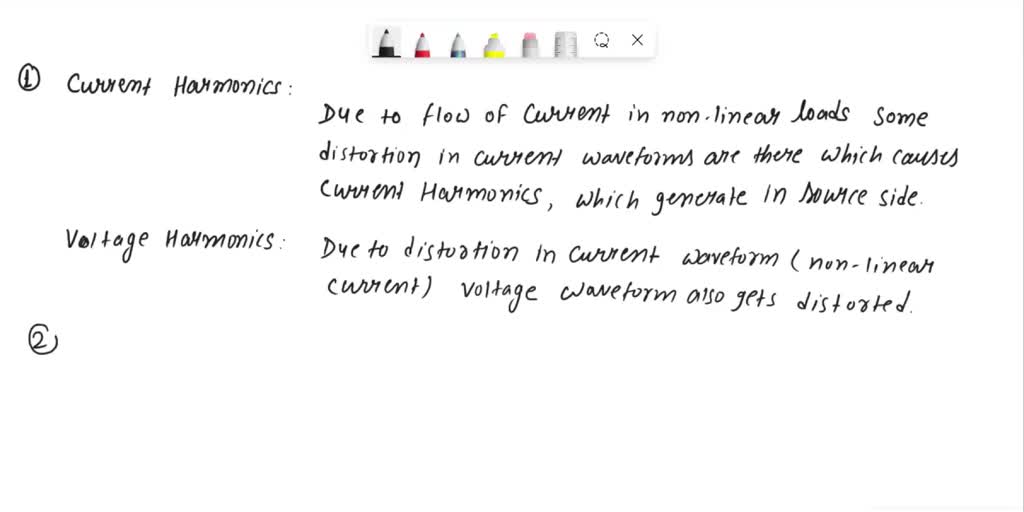 ① Current Harmonics:
Due to flow of current in non-linear loads some
distortion in current waveforms are there which causes
current Harmonics, which generate in source side.
Voltage Harmonics: Due to distortion in current waveform (non-linear
current) voltage waveform also gets distorted.
②